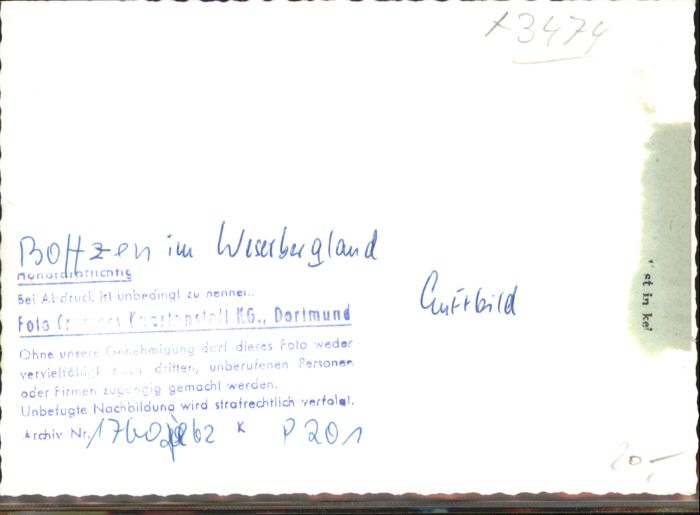 x3474
Boffzen im Weserbergland
Honorarpflichtig
Bei Abdruck ist unbedingt zu nennen:
Luftbild
Foto Cramers Kunstanstalt KG., Dortmund
st in kei
Ohne unsere Genehmigung darf dieses Foto weder
vervielfältigt noch dritten, unberufenen Personen
oder Firmen zugängig gemacht werden.
Unbefugte Nachbildung wird strafrechtlich verfolgt.
Archiv Nr. K P 201
20,-